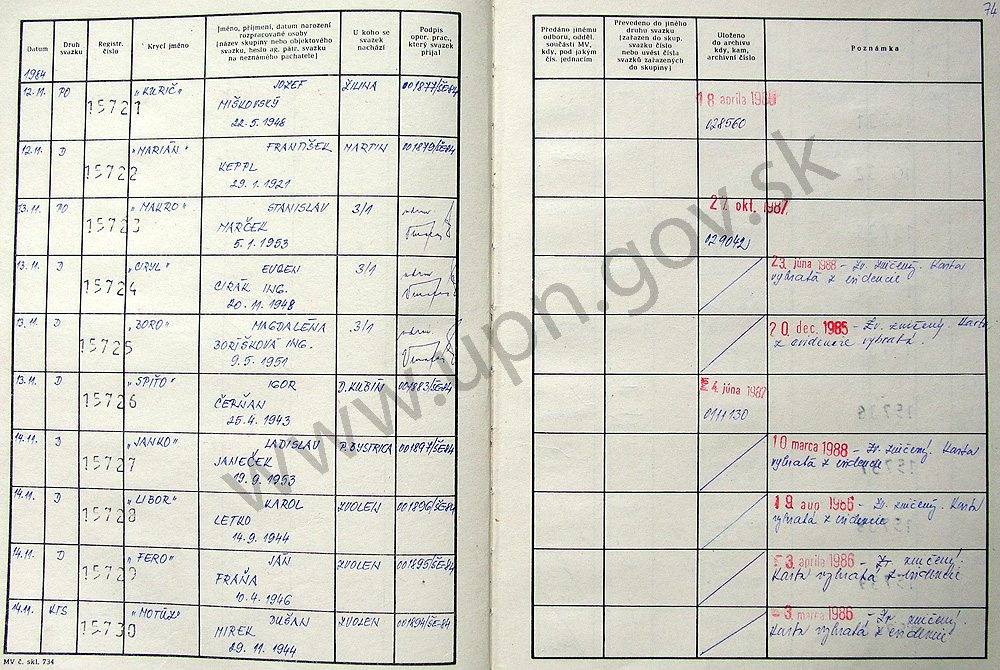 74
Datum
Druh svazku
Registr. číslo
Krycí jméno
Jméno, příjmení, datum narození
rozpracované osoby
(název skupiny nebo objektového
svazku, heslo ag. pátr. svazku
na neznámého pachatele)
U koho se
svazek
nachází
Podpis
oper. prac.,
který svazek
přijal
Předáno jinému
odboru, odděl.
součásti MV,
kdy, pod jakým
čís. jednacím
Převedeno do jiného
druhu svazku
(zařazen do skup.
svazku číslo
nebo uvést čísla
svazků zařazených
do skupiny)
Uloženo
do archivu
kdy, kam,
archivní číslo
Poznámka
1984
12.11. PO 15721 "KURIČ" JOZEF ŽILINA 001877/ŠE-84 18 aprila 1986
MIŠKOVSKÝ 028560
22.5.1948
12.11. D 15722 "MARIÁN" FRANTIŠEK MARTIN 001879/ŠE-84
KEPPL
29.1.1921
13.11. PO 15723 "MAKRO" STANISLAV 3/1 27. okt. 1987
MARČEK 029042
5.1.1953
13.11. D 15724 "CYRYL" EUGEN 3/1 23. júna 1988 - Zv. zničený. Karta
CIRÁK ING. vybratá z evidencie
20.11.1948
13.11. D 15725 "BORO" MAGDALÉNA 3/1 20. dec. 1985 - Zv. zničený. Karta
BORIŠKOVÁ ING. z evidencie vybratá.
9.5.1951
13.11. D 15726 "SPIŤO" IGOR D. KUBÍN 001883/ŠE-84 4. júna 1987
ČERŇAN 0111130
25.4.1943
14.11. D 15727 "JANKO" LADISLAV P. BYSTRICA 001897/ŠE-84 10 marca 1988 - Zv. zničený. Karta
JANEČEK vybratá z evidencie
19.9.1953
14.11. D 15728 "LIBOR" KAROL ZVOLEN 001896/ŠE-84 19. aug 1986 - Zv. zničený. Karta
LETKO vybratá z evidencie
14.9.1944
14.11. D 15729 "FERO" JÁN ZVOLEN 001895/ŠE-84 3. apríla 1986 - Zv. zničený.
FRAŇA Karta vybratá z evidencie
10.4.1946
14.11. KTS 15730 "MOTÚZ" DUŠAN ZVOLEN 001894/ŠE-84 3. marca 1986 - Zv. zničený.
MIREK Karta vybratá z evidencie
29.11.1944
MV č. skl. 734
www.upn.gov.sk